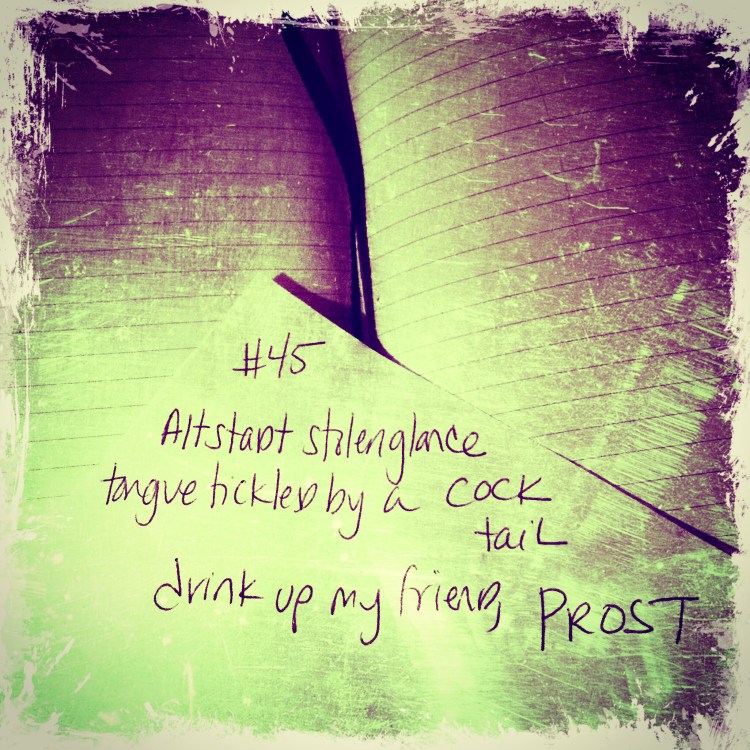 #45
Altstadt stolen glance
tongue tickled by a cock
tail
drink up my friend, PROST